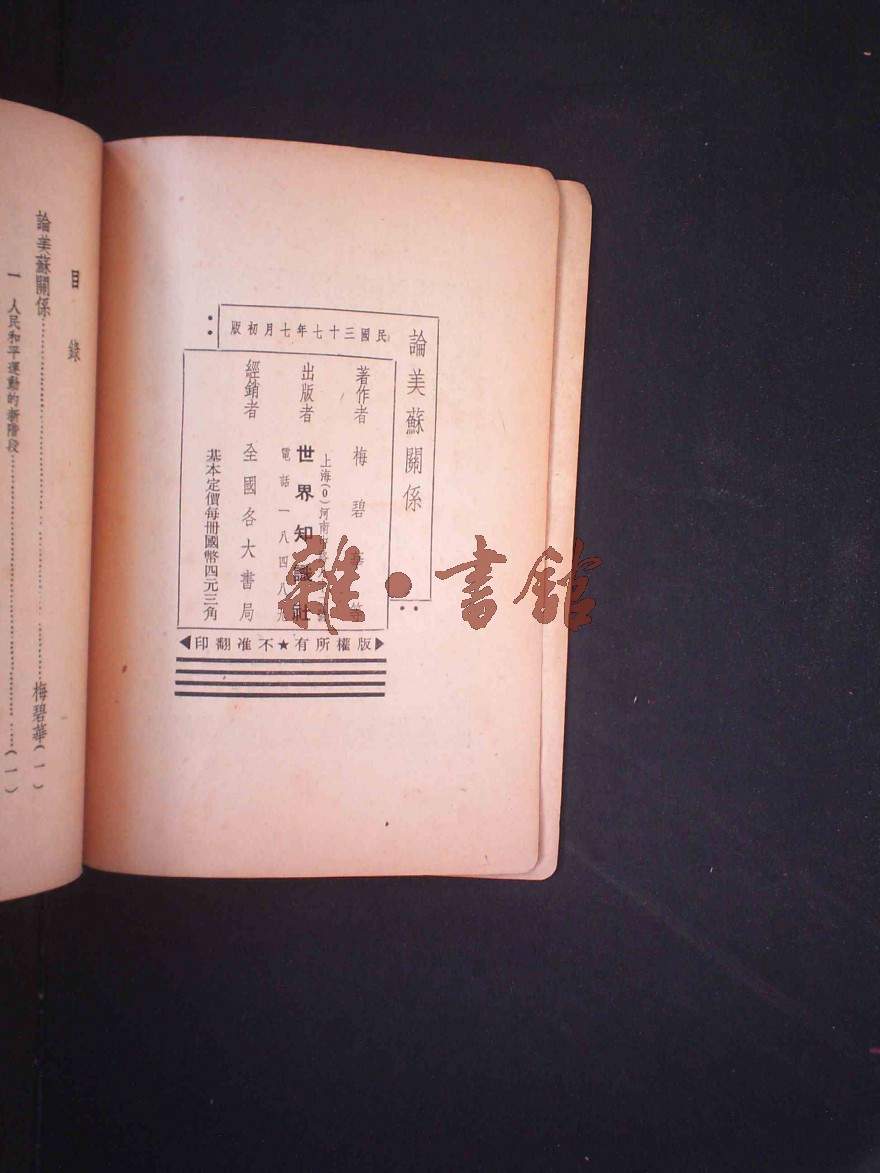 論美蘇關係
民國三十七年七月初版
著作者 梅碧華等
上海(0)河南
出版者 世界知識社
電話一八四八九
經銷者 全國各大書局
基本定價每冊國幣四元三角
版權所有★不准翻印
目錄
論美蘇關係……梅碧華(一)
一 人民和平運動的新階段……(一)
雜·書館